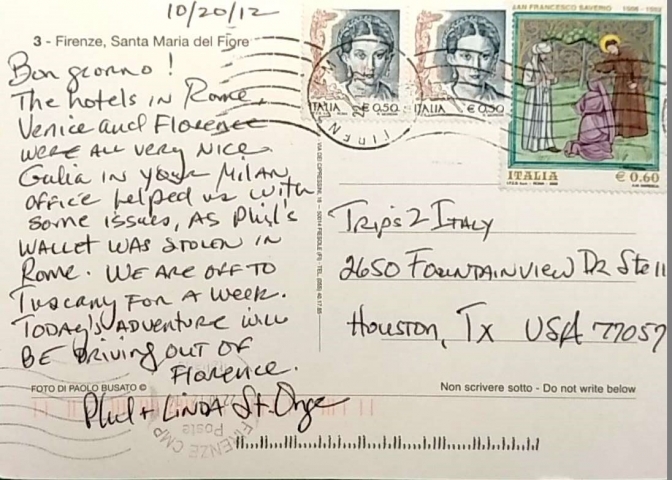 10/20/12
3 - Firenze, Santa Maria del Fiore
Bon giorno!
The hotels in Rome,
Venice and Florence
were all very nice.
Gulia in your Milan
office helped us with
some issues, as Phil's
wallet was stolen in
Rome. We are off to
Tuscany for a week.
Today's adventure will
be driving out of
Florence.
Phil + Linda St. Onge
FOTO DI PAOLO BUSATO ©
ITALIA € 0,50
ITALIA € 0,50
SAN FRANCESCO SAVERIO
ITALIA € 0.60
Trips 2 Italy
2650 Fountainview Dr Ste 11
Houston, Tx USA 77057
Non scrivere sotto - Do not write below
FIRENZE CMP
Poste